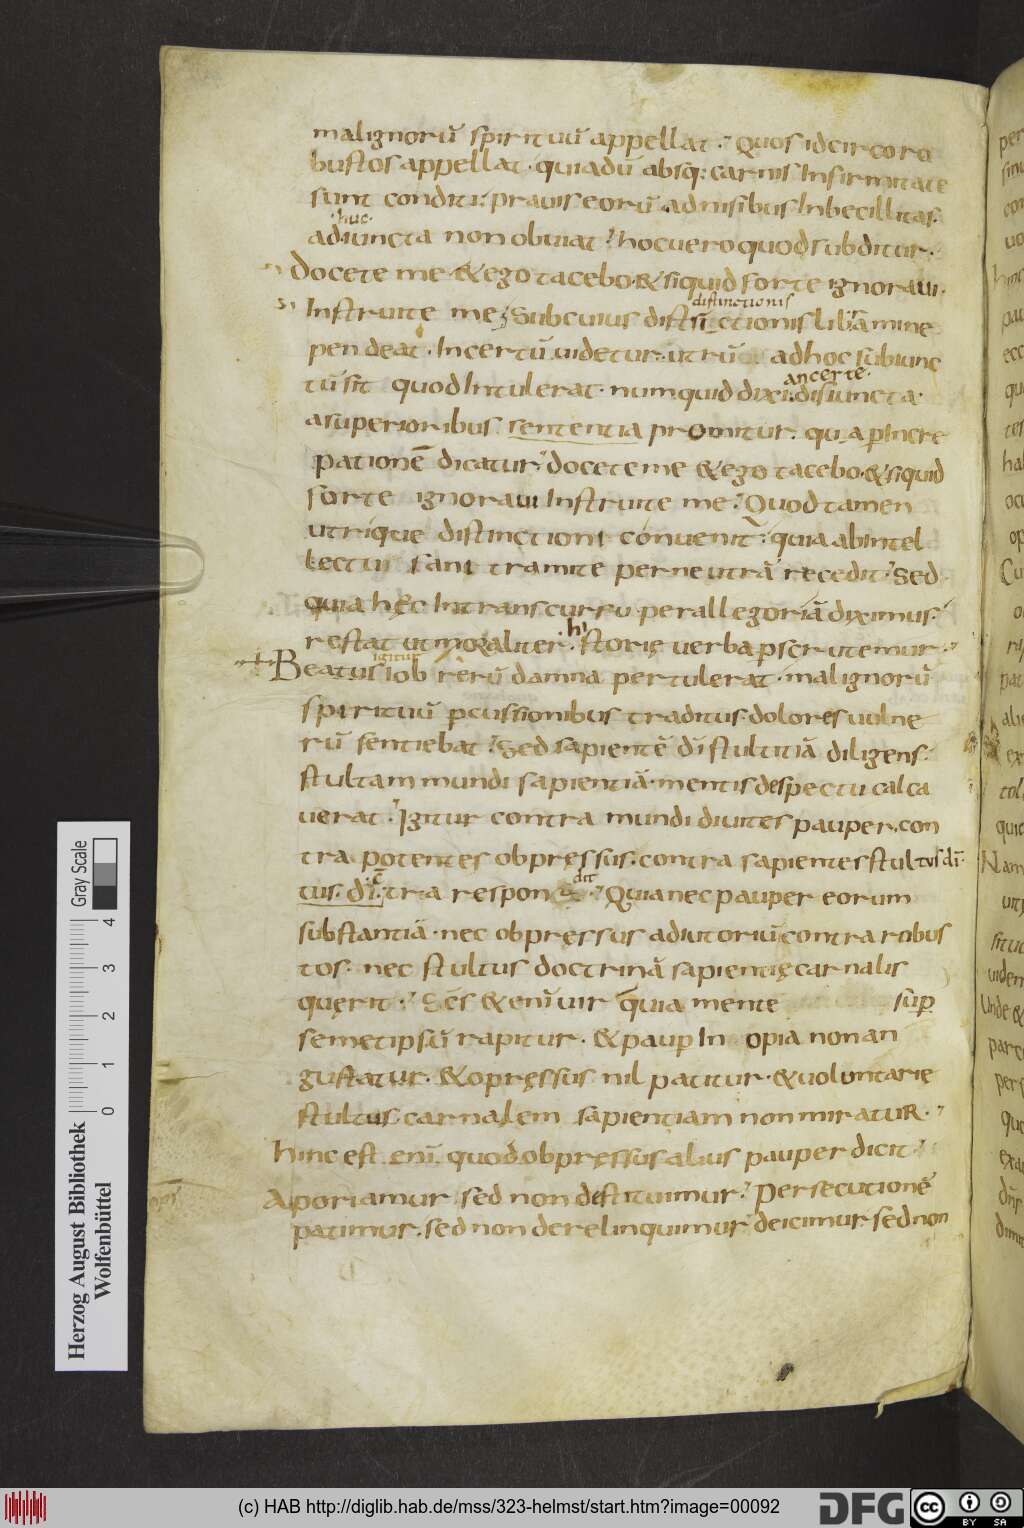 malignorū spirituū appellat. Quos idcirco ro
bustos appellat. qui adū absq; carnis Infirmitate
sunt conditi. prauis eorū admisibus Inbecillitas
huc.
adiuncta non obuiat. hoc uero quod subditur.
Docete me & ego tacebo. & siquid forte ignoraui.
distinctionis
Instruite me. Sub cuius distinctionis libramine
pendeat. Incertū uidetur. utrū ad hoc subiunc
an certe.
tū sit quod Intulerat. numquid dixi. disiuncta
a superioribus sententia promitur. quia p Incre
pationē dicatur. docete me & ego tacebo. & siquid
forte ignoraui Instruite me. Quod tamen
utrique distinctioni conuenit. quia ab Intel
lectus sani tramite per neutrā recedit. Sed
quia hęc In transcursu per allegoriā diximus.
hi
restat ut moraliter. storię uerba pscrutemur.
igitur
Beatus iob rerū damna pertulerat. malignorū
spirituū pcussionibus traditus. dolores uulne
rū sentiebat. Sed sapientē dī stultitiā diligens.
stultam mundi sapientiā. mentis despectu calca
uerat. Igitur contra mundi diuites pauper. con
tra potentes obpręssus. contra sapientes stultus dī.
dit
tus. dī. tra respon
Quia nec pauper eorum
substantiā. nec obpręssus adiutoriū contra robus
tos. nec stultus doctrinā sapientię carnalis
quęrit. Scs & enī uir quia mente sup
semetipsū rapitur. & paup In opia non an
gustatur. & opręssus nil patitur. & uoluntarie
stultus carnalem sapientiam non miratur.
hinc est enī. quod obpręssus alius pauper dicit.
Aporiamur sed non destituimur. Persecutionē
patimur. sed non derelinquimur deicimur sed non
Gray Scale
0 1 2 3 4
Herzog August Bibliothek
Wolfenbüttel
(c) HAB http://diglib.hab.de/mss/323-helmst/start.htm?image=00092
DFG
cc BY SA